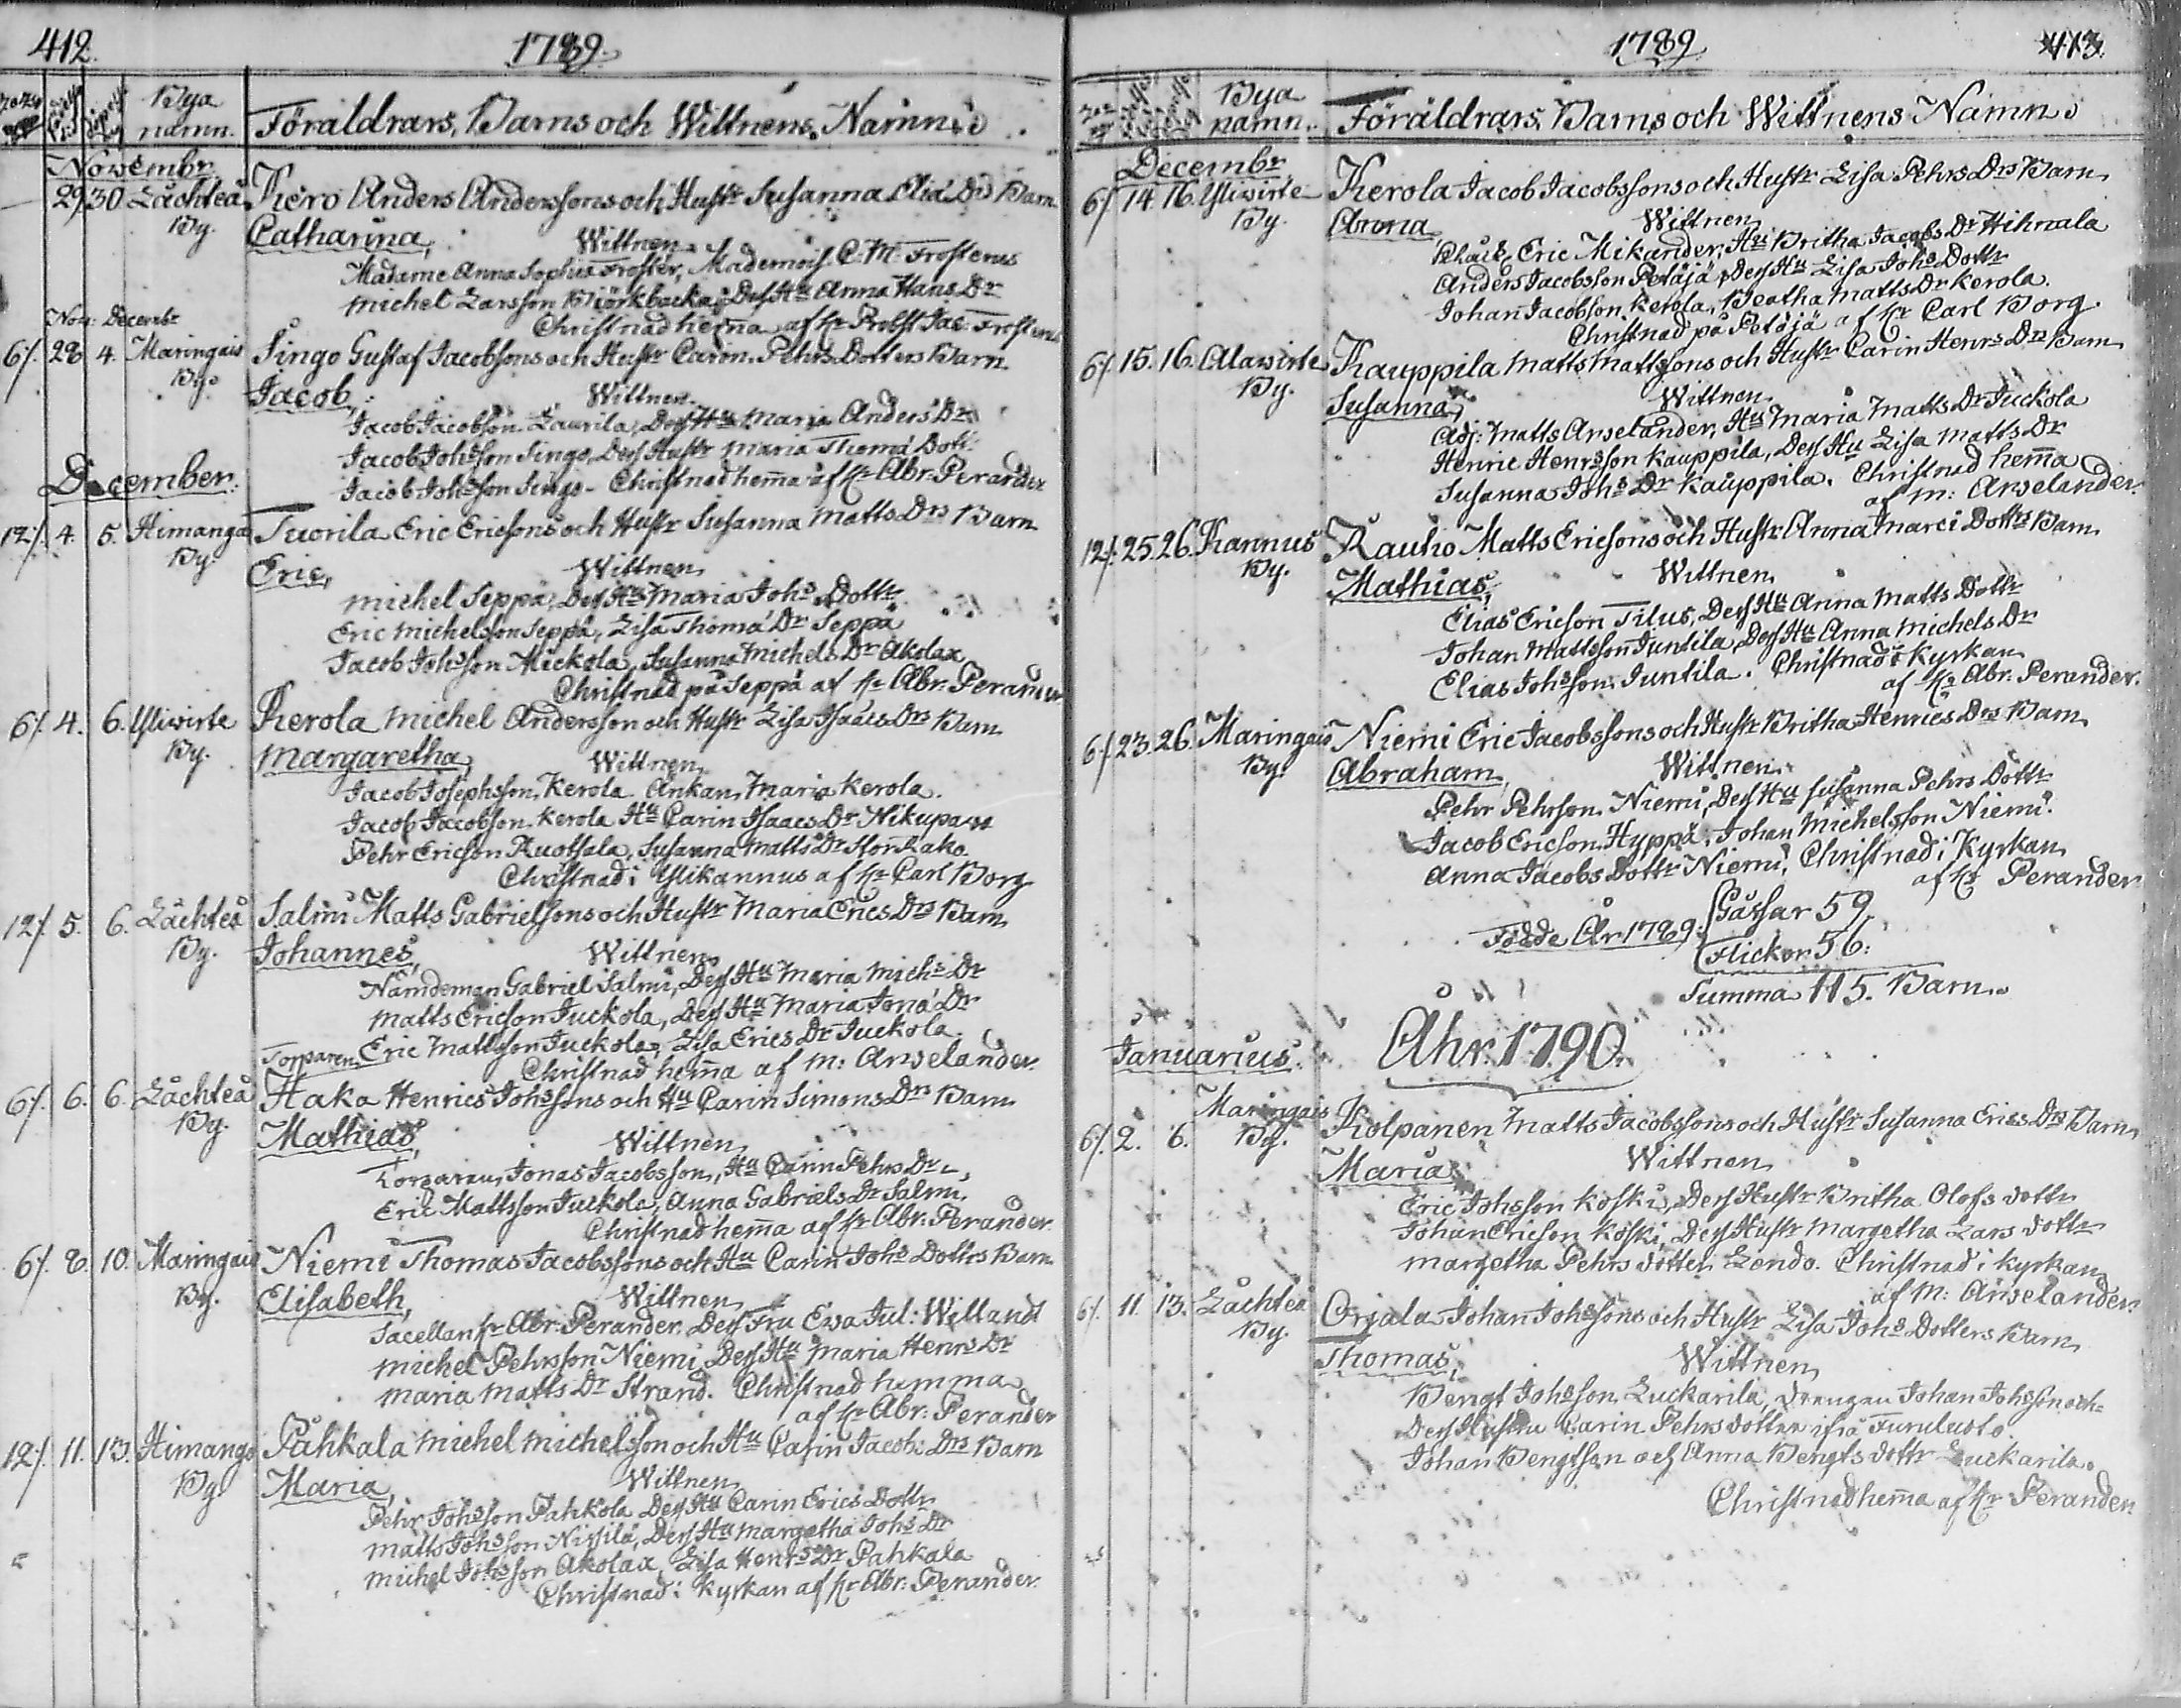 412.
1789.
Bya
namn.
Föräldrars, Barns och Wittnens Namn.
Novembr
29 30 Låchteå Kero Anders Anderssons och Hustr Susanna Eliæ Drs Barn
By.
Catharina, Wittnen
Madame Anna Sophia Froster, Mademois. C. M. Frosterus
Michel Larsson Björkbacka, Dess Hu Anna Hans Dr
Christnad hemma af Hr Probst Jac. Frosterus
Nov: Decembr
6/ 28 4. Maringais Singo Gustaf Jacobssons och Hustr Carin Pehrs Dotters Barn
By.
Jacob, Wittnen
Jacob Jacobsson Laurila, Dess Hu Maria Anders Dr
Jacob Johsson Singo, Dess Hustr Maria Thomæ Dott.
Jacob Johsson Singo. Christnad hemma af Hr Abr. Perander
December.
12/ 4. 5. Himanga Tuorila Eric Ericsons och Hustr Susanna Matts Drs Barn
By.
Eric, Wittnen
Michel Seppä, Dess Hu Maria Johs Dottr
Eric Michelsson Seppä, Lisa Thomæ Dr Seppä
Jacob Johsson Mickola, Susanna Michels Dr Akolax
Christnad på Seppä af Hr Abr. Perander
6/ 4. 6. Yliwirte Kerola Michel Andersson och Hustr Lisa Isaacs Drs Barn
By.
Margaretha, Wittnen
Jacob Josephsson Kerola. Änkan Maria Kerola.
Jacob Jacobsson Kerola Hu Carin Isaacs Dr Nikupaas
Pehr Ericsson Ruotsala, Susanna Matts Dr StorRako
Christnad i Ylikannus af Hr Carl Borg
12/ 5. 6. Låchteå Salmi Matts Gabrielssons och Hustr Maria Erics Drs Barn
By.
Johannes, Wittnen
Nämdeman Gabriel Salmi, Dess Hu Maria Michs Dr
Matts Ericson Juckola, Dess Hu Maria Jonæ Dr
Eric Mattsson Juckola, Lisa Erics Dr Juckola.
Christnad hemma af M: Arwelander.
Torparen
6/. 6. 6. Låchteå Haka Henrics Johssons och Hu Carin Simons Drs Barn
By.
Mathias, Wittnen
Torparen Jonas Jacobsson, Hu Carin Pehrs Dr
Eric Mattsson Juckola, Anna Gabriels Dr Salmi.
Christnad hemma af Hr Abr. Perander.
6/. 8. 10. Maringais Niemi Thomas Jacobssons och Hu Carin Johs Dottrs Barn
By.
Elisabeth, Wittnen
Sacellan Hr Abr. Perander. Dess Fru Ewa Jul: Willandt
Michel Pehrsson Niemi, Dess Hu Maria Henrs Dr
Maria Matts Dr Strand. Christnad hemma
af Hr Abr: Perander
12/ 11. 13. Himango Pahkala Michel Michelsson och Hu Carin Jacobs Drs Barn
By
Maria, Wittnen
Pehr Johsson Pahkola Dess Hu Carin Erics Dottr
Matts Johsson Nissilä, Dess Hu Margetha Johs Dr
Michel Johsson Akolax, Lisa Henrs Dr Pahkala
Christnad i Kyrkan af Hr Abr: Perander.
1789.
413.
Bya
namn.
Föräldrars, Barns och Wittnens Namn.
Decembr
6/ 14. 16. Yliwirte Kerola Jacob Jacobssons och Hustr Lisa Pehrs Drs Barn
By.
Anna, Wittnen
Eric Mikander, Hu Britha Jacobs Dr Hihnala
Anders Jacobsson Petäjä, Dess Hu Lisa Johs Dottr
Johan Jacobsson Kerola, Beatha Matts Dr Kerola.
Christnad på Petäjä af Hr Carl Borg.
6/ 15. 16. Alawirte Kauppila Matts Mattssons och Hustr Carin Henrs Drs Barn
By.
Susanna, Wittnen
Adj: Matts Arwelander, Hu Maria Matts Dr Juckola
Henric Henrsson Kauppila, Dess Hu Lisa Matts Dr
Susanna Johs Dr Kauppila. Christnad hemma
af M: Arwelander.
12/. 25. 26. Kannus Rauhio Matts Ericsons och Hustr Anna Marci Dottrs Barn
By.
Mathias, Wittnen
Elias Ericson Tilus, Dess Hu Anna Matts Dottr
Johan Mattsson Juntila, Dess Hu Anna Michels Dr
Elias Johsson Juntila. Christnad i Kyrkan
af Hr Abr. Perander.
6/ 23. 26. Maringais Niemi Eric Jacobssons och Hustr Britha Henrics Drs Barn
By.
Abraham, Wittnen
Pehr Pehrson Niemi, Dess Hu Susanna Pehrs Dottr
Jacob Ericson Hyppä, Johan Michelsson Niemi.
Anna Jacobs Dottr Niemi, Christnad i Kyrkan
af Hr Perander
Gåssar 59.
Födde År 1789:
Flickor 56:
Summa 115. Barn.
Ahr. 1790.
Januarius.
Maringais
6/. 2. 6. By. Kolpanen Matts Jacobssons och Hustr Susanna Erics Drs Barn
Maria, Wittnen
Eric Johsson Koski, Dess Hustr Britha Olofs dottr
Johan Ericson Koski, Dess Hustr Margetha Lars dottr
Margetha Pehrs dotter Lendo. Christnad i Kyrkan
af M: Arwelander.
6/. 11. 13. Låchteå Orjala Johan Johssons och Hustr Lisa Johs Dotters Barn
By.
Thomas, Wittnen
Bengt Johsson Luckarila, Drengen Johan Johsson och
Dess Hustru Carin Pehrs dotter ifrå Furuluoto.
Johan Bengtson och Anna Bengts dottr Luckarila.
Christnad hemma af Hr Perander.